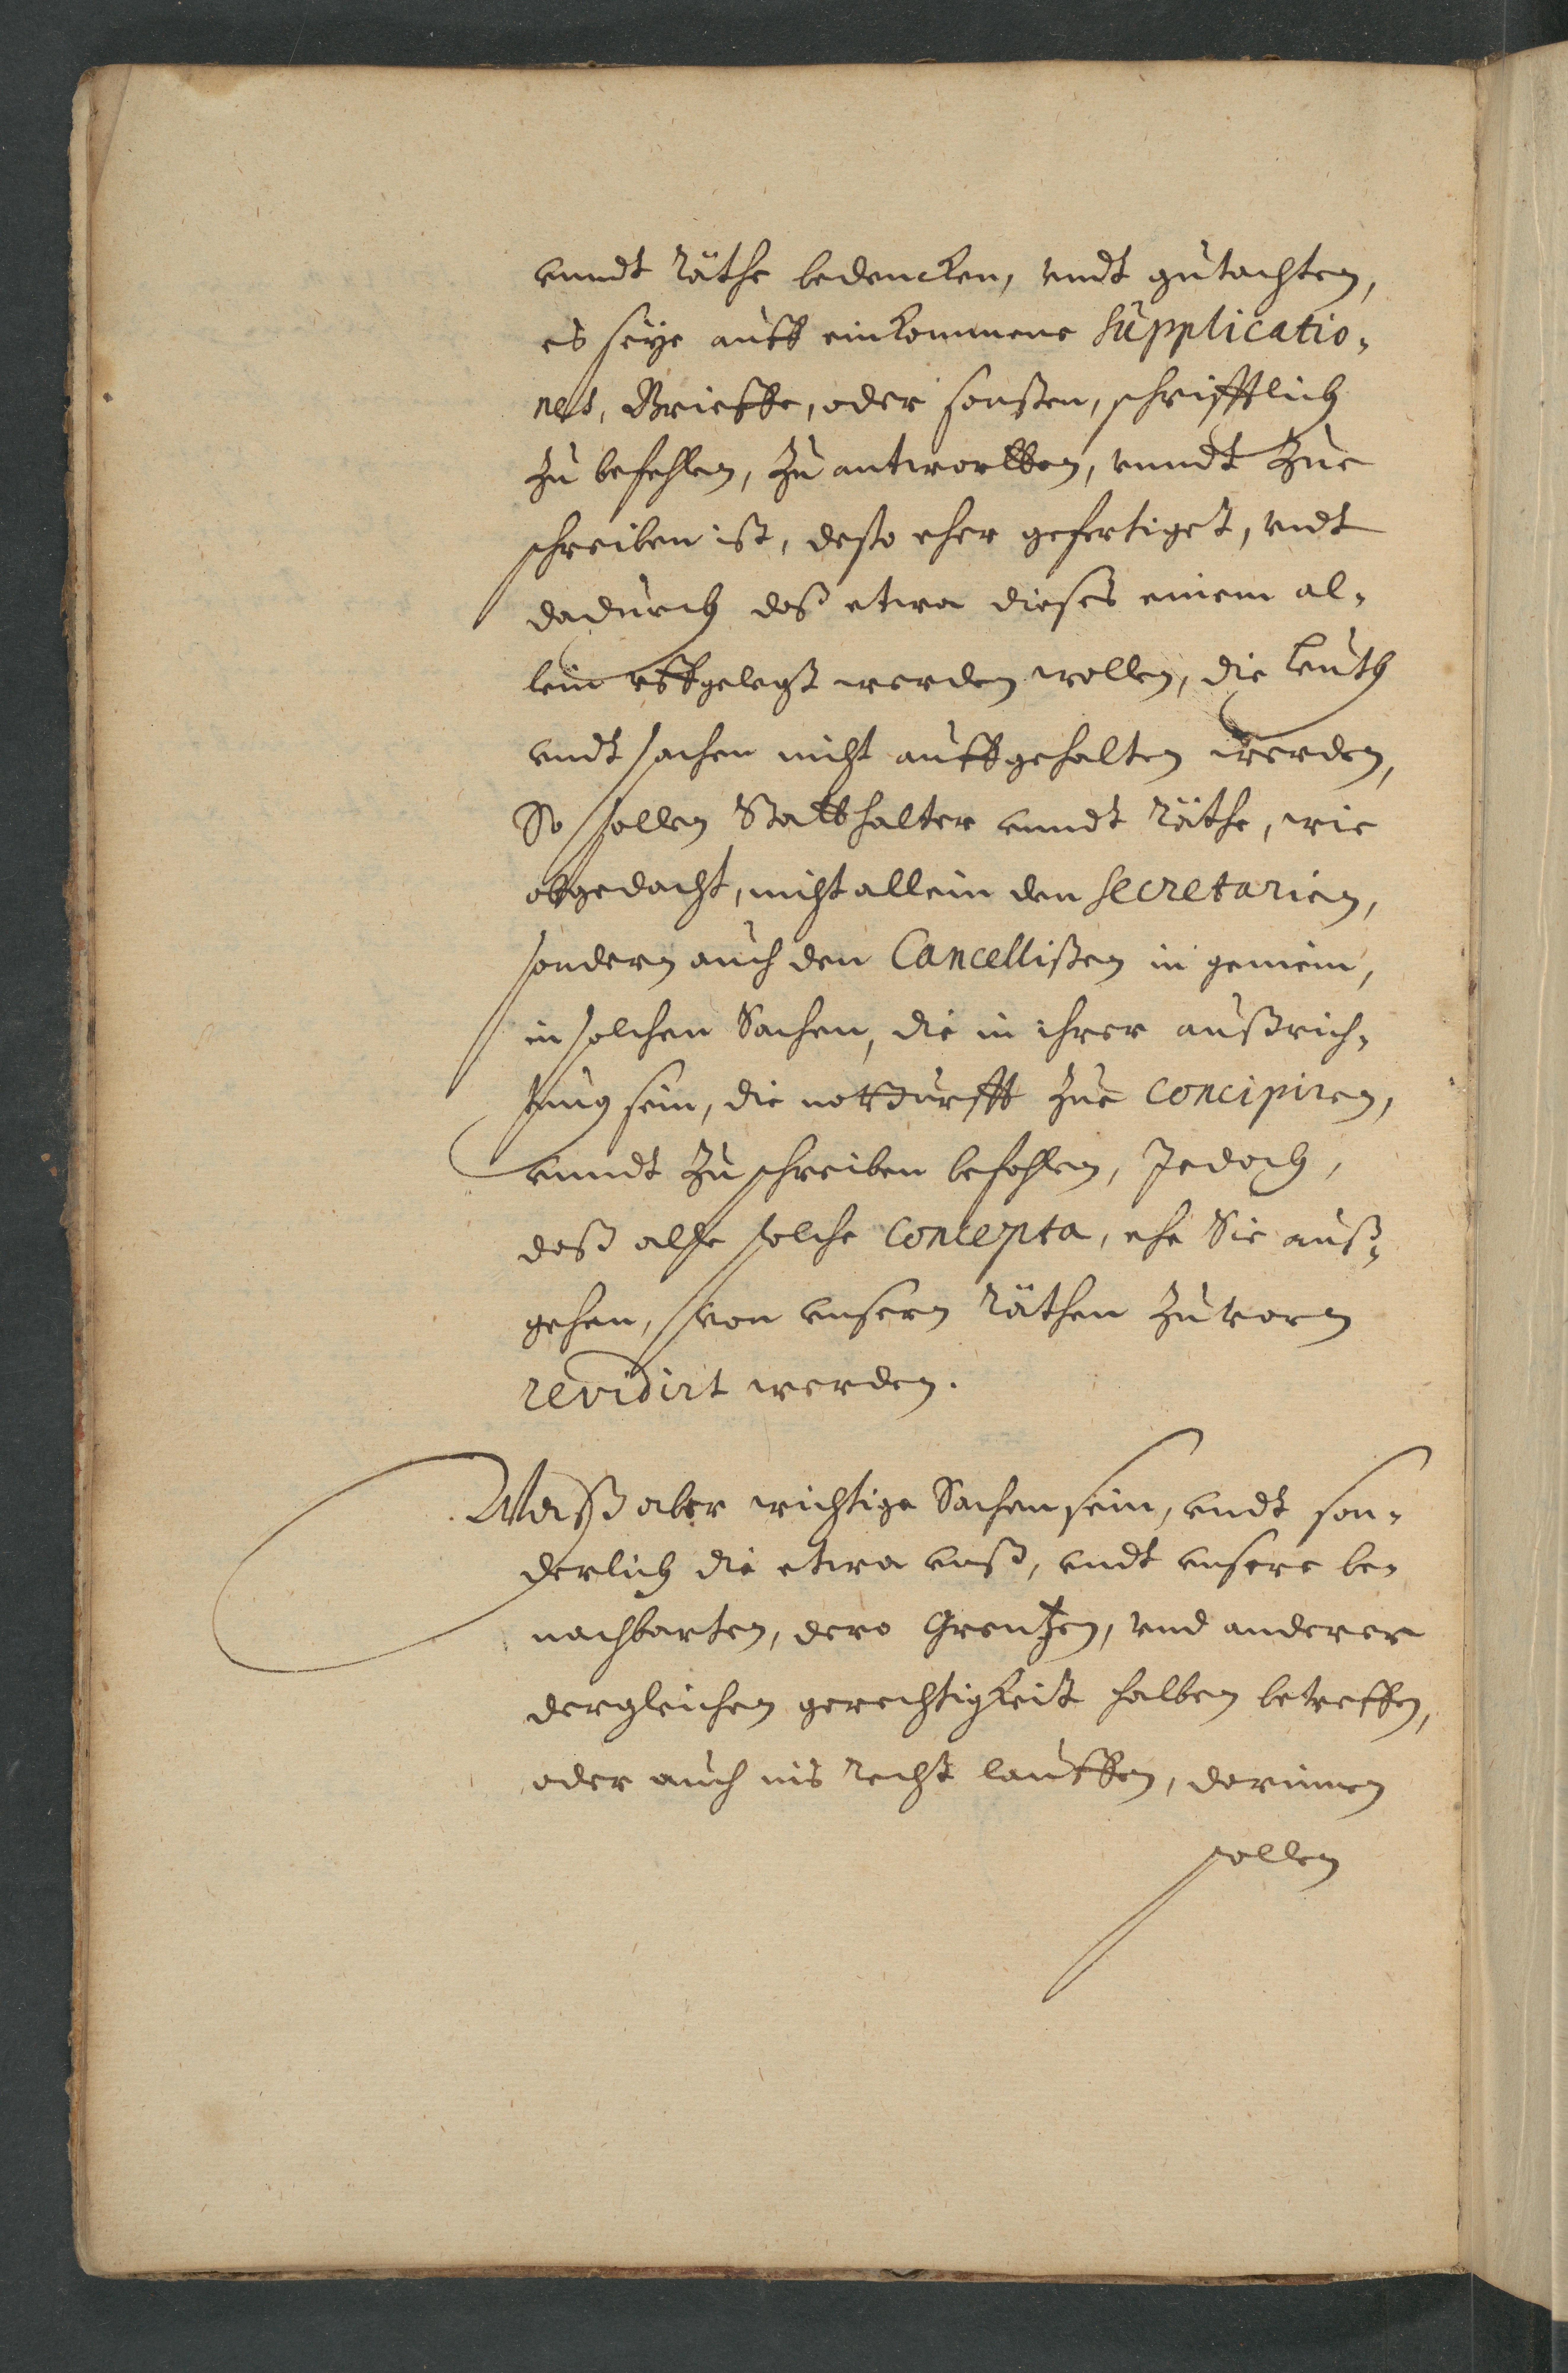 vnndt Räthe bedencken, vndt gutachten,
es seye auff einkommene Supplicatio-
nes, Brieffe, oder sonsten, schrifftlich
zu befehlen, zu antwortten, vnndt Zue
schreiben ist, desto eher gefertiget, vndt
dadurch daß etwa dieses einem al-
lein vffgelegt werden wollen, die Leuth
vndt sachen nicht auffgehalten werden,
So sollen Statthalter vnndt Räthe, wie
obgedacht, nicht allein den Secretarien,
sondern auch den Cancellisten in gemein,
in solchen Sachen, die in ihrer außrich-
tung sein, die notturfft Zue concipiren,
vnndt Zu schreiben befohlen, Jedoch,
daß alle solche Concepta, ehe Sie auß-
gehen, von vnsern Räthen Zuvorn
revidirt werden.
Waß aber wichtige Sachen sein, vndt son-
derlich die etwa vnß, vndt vnsere be-
nachbarten, dero Grentzen, vnd anderer
dergleichen gerechtigkeit halben betreffen,
oder auch ins Recht lauffen, darinnen
sollen